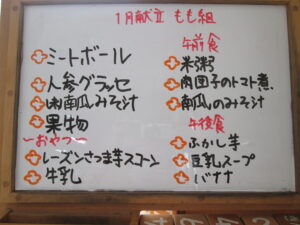 1月献立 もも組
ミートボール
人参グラッセ
南瓜みそ汁
果物
〜おやつ〜
レーズンさつま芋スコーン
牛乳
午前食
米粥
肉団子のトマト煮
南瓜のみそ汁
午後食
ふかし芋
豆乳スープ
バナナ